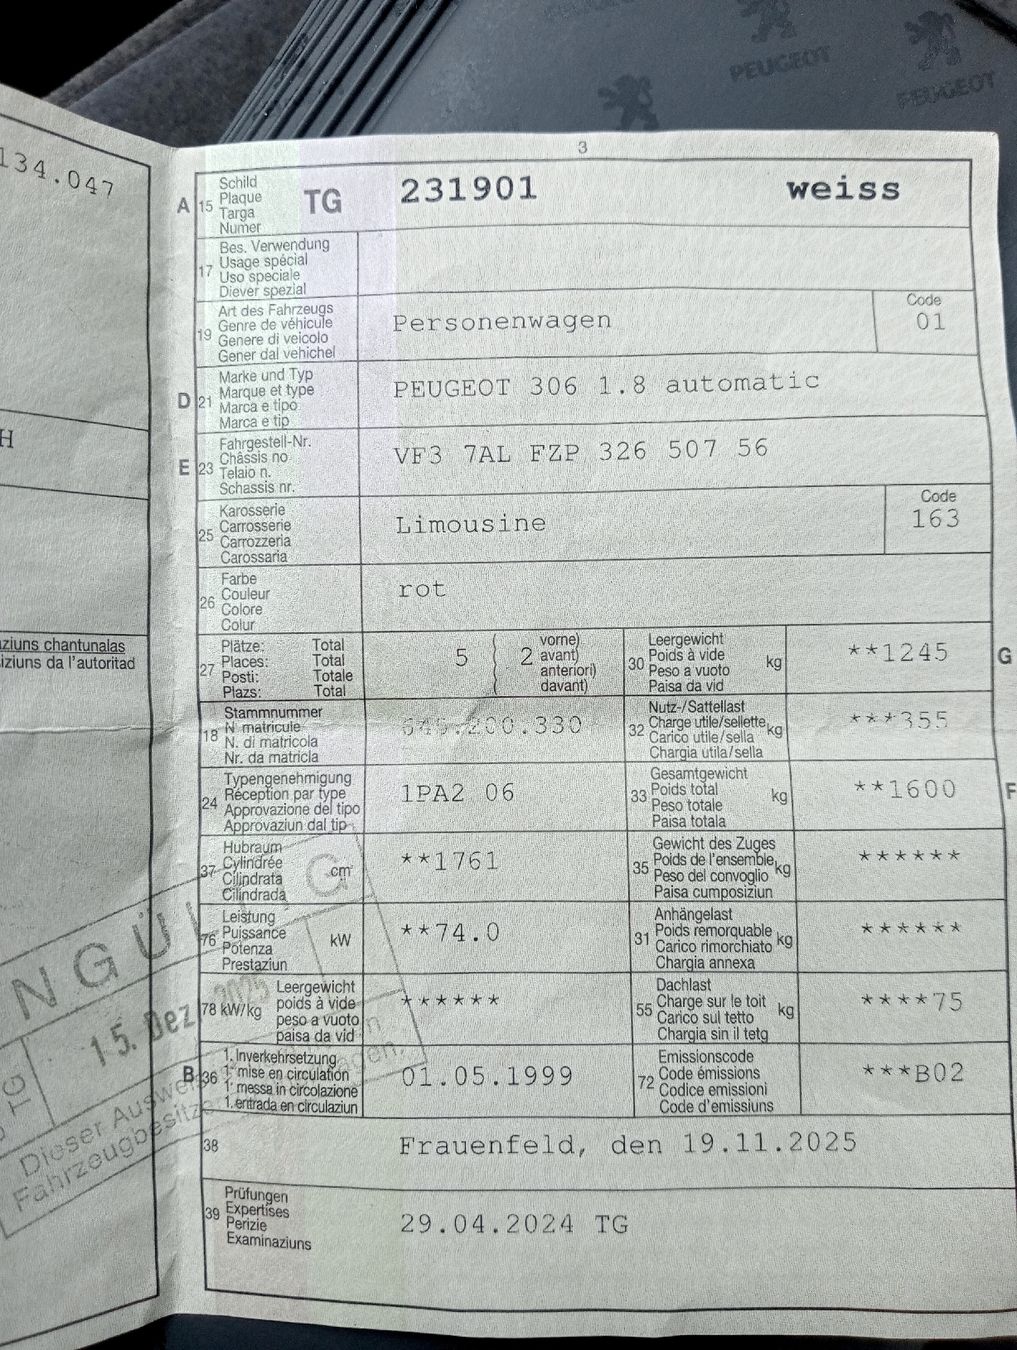 PEUGEOT
PEUGEOT
134.047
H
ziuns chantunalas
iziuns da l'autoritad
3
A 15 Schild
Plaque
Targa
Numer
TG 231901 weiss
17 Bes. Verwendung
Usage spécial
Uso speciale
Diever spezial
19 Art des Fahrzeugs
Genre de véhicule
Genere di veicolo
Gener dal vehichel
Personenwagen
Code
01
D 21 Marke und Typ
Marque et type
Marca e tipo
Marca e tip
PEUGEOT 306 1.8 automatic
E 23 Fahrgestell-Nr.
Châssis no
Telaio n.
Schassis nr.
VF3 7AL FZP 326 507 56
25 Karosserie
Carrosserie
Carrozzeria
Carossaria
Limousine
Code
163
26 Farbe
Couleur
Colore
Colur
rot
27 Plätze: Total
Places: Total
Posti: Totale
Plazs: Total
5 ( 2 vorne)
avant)
anteriori)
davant)
30 Leergewicht
Poids à vide
Peso a vuoto
Paisa da vid
kg
**1245
G
18 Stammnummer
N matricule
N. di matricola
Nr. da matricla
645.200.330
32 Nutz-/Sattellast
Charge utile/sellette
Carico utile/sella
Chargia utila/sella
kg
***355
24 Typengenehmigung
Réception par type
Approvazione del tipo
Approvaziun dal tip
1PA2 06
33 Gesamtgewicht
Poids total
Peso totale
Paisa totala
kg
**1600
F
37 Hubraum
Cylindrée
Cilindrata
Cilindrada
cm³
**1761
35 Gewicht des Zuges
Poids de l'ensemble
Peso del convoglio
Paisa cumposiziun
kg
******
76 Leistung
Puissance
Potenza
Prestaziun
kW
**74.0
31 Anhängelast
Poids remorquable
Carico rimorchiato
Chargia annexa
kg
******
78 kW/kg Leergewicht
poids à vide
peso a vuoto
paisa da vid
******
55 Dachlast
Charge sur le toit
Carico sul tetto
Chargia sin il tetg
kg
****75
B 36 1. Inverkehrsetzung
1. mise en circulation
1. messa in circolazione
1. entrada en circulaziun
01.05.1999
72 Emissionscode
Code émissions
Codice emissioni
Code d'emissiuns
***B02
38 Frauenfeld, den 19.11.2025
39 Prüfungen
Expertises
Perizie
Examinaziuns
29.04.2024 TG
NGÜLTIG
15. Dez. 2025
TG
Dieser Ausweis
Fahrzeugbesitze